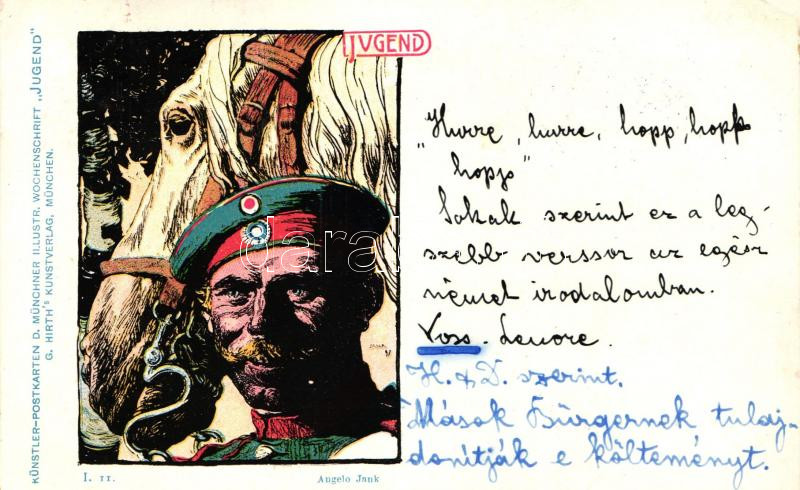 KÜNSTLER-POSTKARTEN D. MÜNCHNER ILLUSTR. WOCHENSCHRIFT „JUGEND"
G. HIRTH's KUNSTVERLAG, MÜNCHEN.
JUGEND
darab
I. 11.
Angelo Jank
„Hurre, hurre, hopp, hopp
hopp"
Sokak szerint ez a leg-
szebb verssor az egész
német irodalomban.
Voss. Lenore.
H. & D. szerint.
Mások Bürgernek tulaj-
donítják e költeményt.